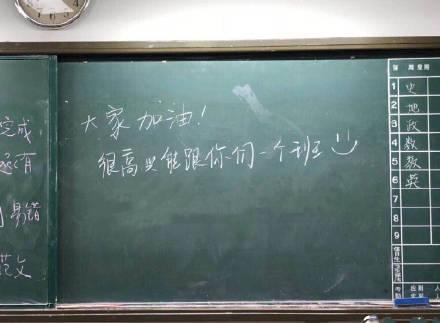 大家加油!
很高兴能跟你们一个班
完成
有
易错
范文
1 史
2 地
3 政
4 数
5 数
6 英
7
8
9